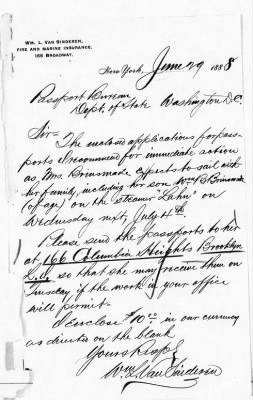 WM. L. VAN SINDEREN,
FIRE AND MARINE INSURANCE.
166 BROADWAY.
New York, June 29 1888
Passport Bureau
Dept. of State Washington D.C.
Sir- The enclosed applications for pass-
ports I recommend for immediate action
as Mrs. Brinsmade expects to sail with
her family, including her son Wm. B. Brinsmade
(of age) on the steamer "Lahn" on
Wednesday next, July 4th.
Please send the passports to her
at 166 Columbia Heights Brooklyn
L.I. so that she may receive them on
Tuesday if the work in your office
will permit-
I enclose $10.00 in our currency
as directs on the blank
Yours Respy
Wm. L. Van Sinderen